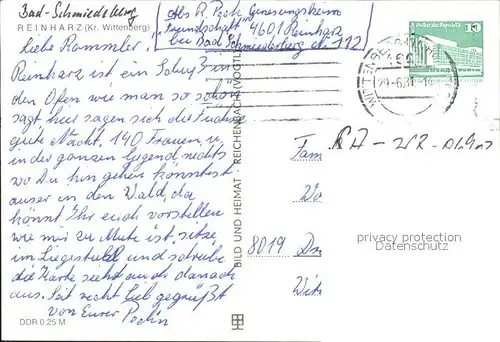 Bad-Schmiedeberg
REINHARZ (Kr. Wittenberg)
Abs R. Pech Genesungsheim
"Freundschaft" 4601 Reinharz
bei Bad Schmiedeberg 112
Liebe Rammler!
Reinharz ist ein Schuß in
den Ofen wie man so schön
sagt hier sagen sich die Füchse
gute Nacht. 140 Frauen u.
in der ganzen Gegend nichts
wo Du hin gehen könntest
auser in den Wald, da
könnt Ihr euch vorstellen
wie mir zu Mute ist, sitze
im Liegestuhl und schreibe
die Karte sieht auch danach
aus. Seit recht lieb gegrüßt
von Eurer Pechn
DDR 0.25 M
BILD UND HEIMAT · REICHENBACH (VOGTL)
Palast der Republik
WITTENBERG
29.-6.81
Fam
8019 Dr
privacy protection
Datenschutz